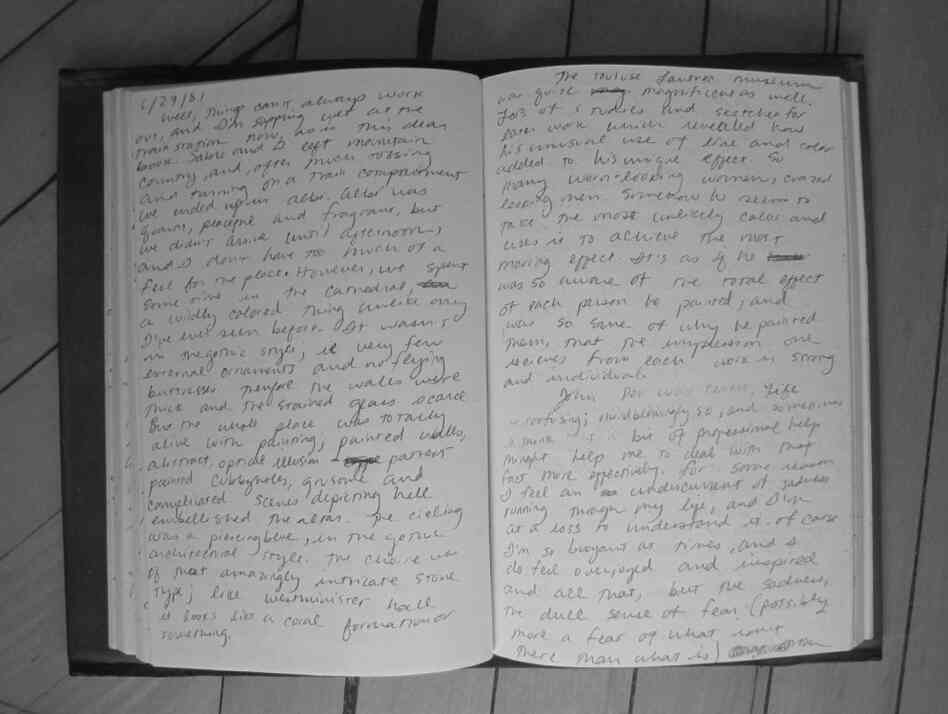 6/29/81
Well, things can't always work
out, and I'm sipping wet at the
train station now, as is this dear
book. Sabre and I left mountain
country, and, after much tossing
and turning on a train compartment
we ended up in Albi. Albi was
quaint, peaceful and fragrant, but
we didn't arrive until afternoon,
and I don't have too much of a
feel for the place. However, we spent
some time in the cathedral,
a wildly colored thing unlike any
I've ever seen before. It wasn't
in the gothic style, it very few
external ornaments and no flying
buttresses therefore the walls were
thick and the stained glass scarce
But the whole place was totally
alive with painting; painted walls,
abstract, optical illusion pattern
painted cubbyholes, grusome and
complicated scenes depicting hell
embellished the altar. The cieling
was a piercing blue, in the gothic
architectural style. The choir was
of that amazingly intricate stone
type; like Westminister hall
it looks like a coral formation or
something.
The Toulouse Lautrec museum
was quite magnificent as well.
Lots of studies and sketches for
later work which revealed how
his unusual use of line and color
added to his unique effect. So
many worn-looking women, crazed
looking men. Somehow he seems to
take the most unlikely color and
uses it to achieve the most
moving effect. It's as if he
was so aware of the total effect
of each person he painted, and
was so sure of why he painted
them, that the impression one
recieves from each work is strong
and individual.
Life
confusing; mindbendingly so, and sometimes
I think a bit of professional help
might help me to deal with that
fact more effectively. For some reason
I feel an undercurrent of sadness
running through my life, and I'm
at a loss to understand it. Of corse
I'm so buoyant at times, and I
do feel overjoyed and inspired
and all that, but the sadness,
the dull sense of fear (possibly
more a fear of what isn't
there than what is)